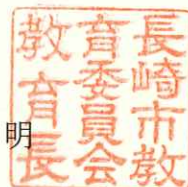 長崎市教
育委員会
教育長
明